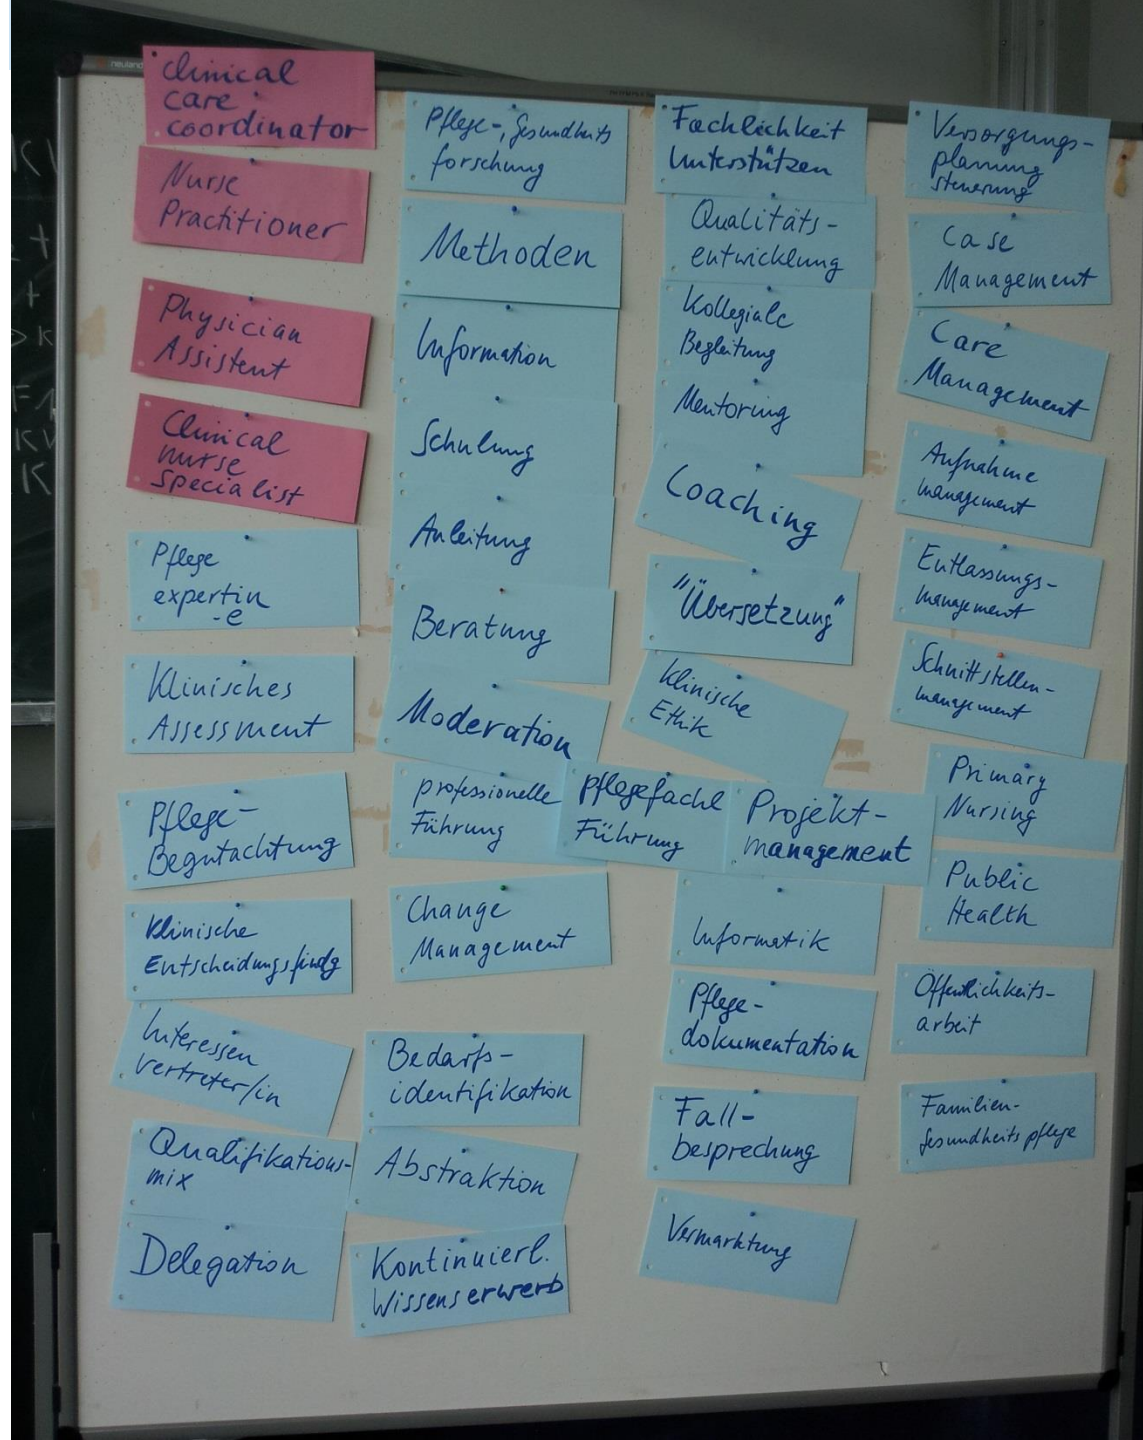 neuland
clinical
care
coordinator
Nurse
Practitioner
Physician
Assistent
Clinical
nurse
specialist
Pflege
expertin
-e
Klinisches
Assessment
Pflege-
Begutachtung
Klinische
Entscheidungsfindg
Interessen
vertreter/in
Qualifikations-
mix
Delegation
Pflege-, Gesundheits
forschung
Methoden
Information
Schulung
Anleitung
Beratung
Moderation
professionelle
Führung
Pflegefachl
Führung
Projekt-
management
Change
Management
Bedarfs-
identifikation
Abstraktion
Kontinuierl.
Wissenserwerb
Fachlichkeit
Unterstützen
Qualitäts-
entwicklung
Kollegiale
Begleitung
Mentoring
Coaching
"Übersetzung"
Klinische
Ethik
Informatik
Pflege-
dokumentation
Fall-
besprechung
Vermarktung
Versorgungs-
planung
steuerung
Case
Management
Care
Management
Aufnahme
management
Entlassungs-
management
Schnittstellen-
management
Primary
Nursing
Public
Health
Öffentlichkeits-
arbeit
Familien-
gesundheitspflege